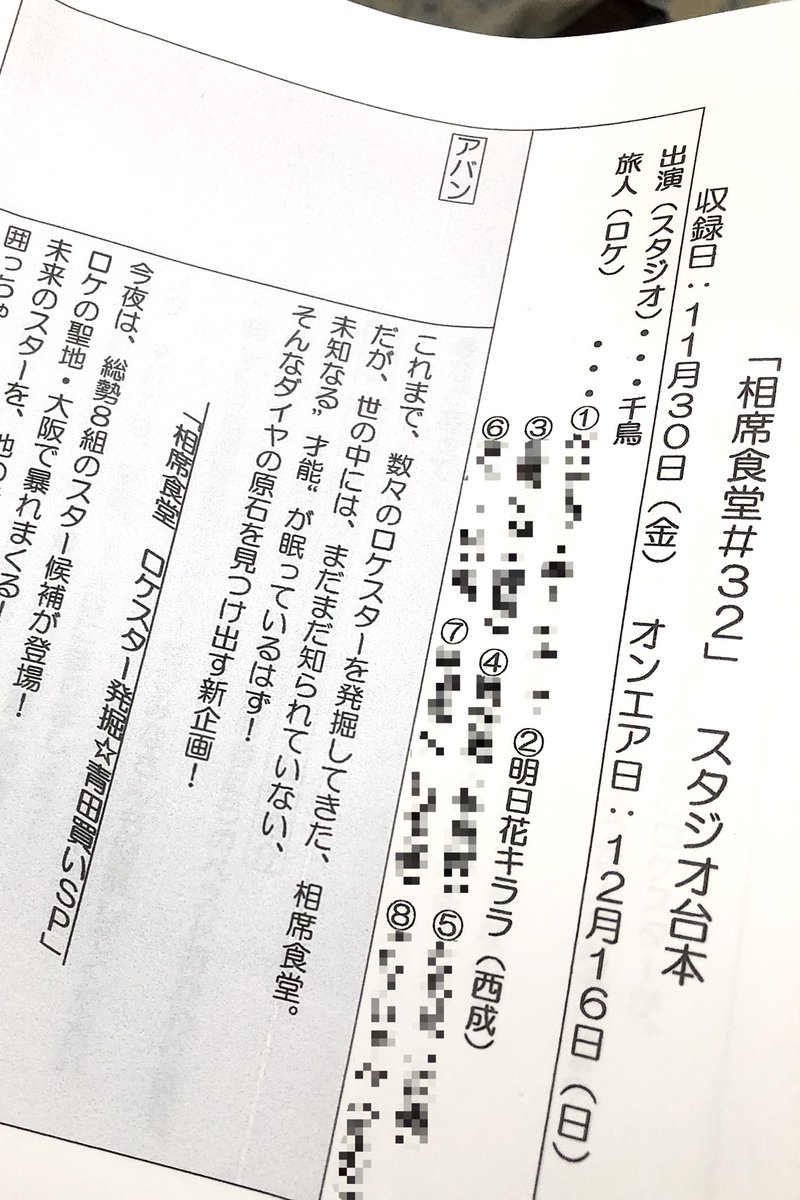 「相席食堂#32」 スタジオ台本
収録日:11月30日(金) オンエア日:12月16日(日)
出演(スタジオ)・・・千鳥
旅人(ロケ) ・・・①
②明日花キララ(西成)
③
④
⑤
⑥
⑦
⑧
アバン
これまで、数々のロケスターを発掘してきた、相席食堂。
だが、世の中には、まだまだ知られていない、
未知なる”才能“が眠っているはず!
そんなダイヤの原石を見つけ出す新企画!
「相席食堂 ロケスター発掘☆青田買いSP」
今夜は、総勢8組のスター候補が登場!
ロケの聖地・大阪で暴れまくる!
未来のスターを、他の
囲っちゃ